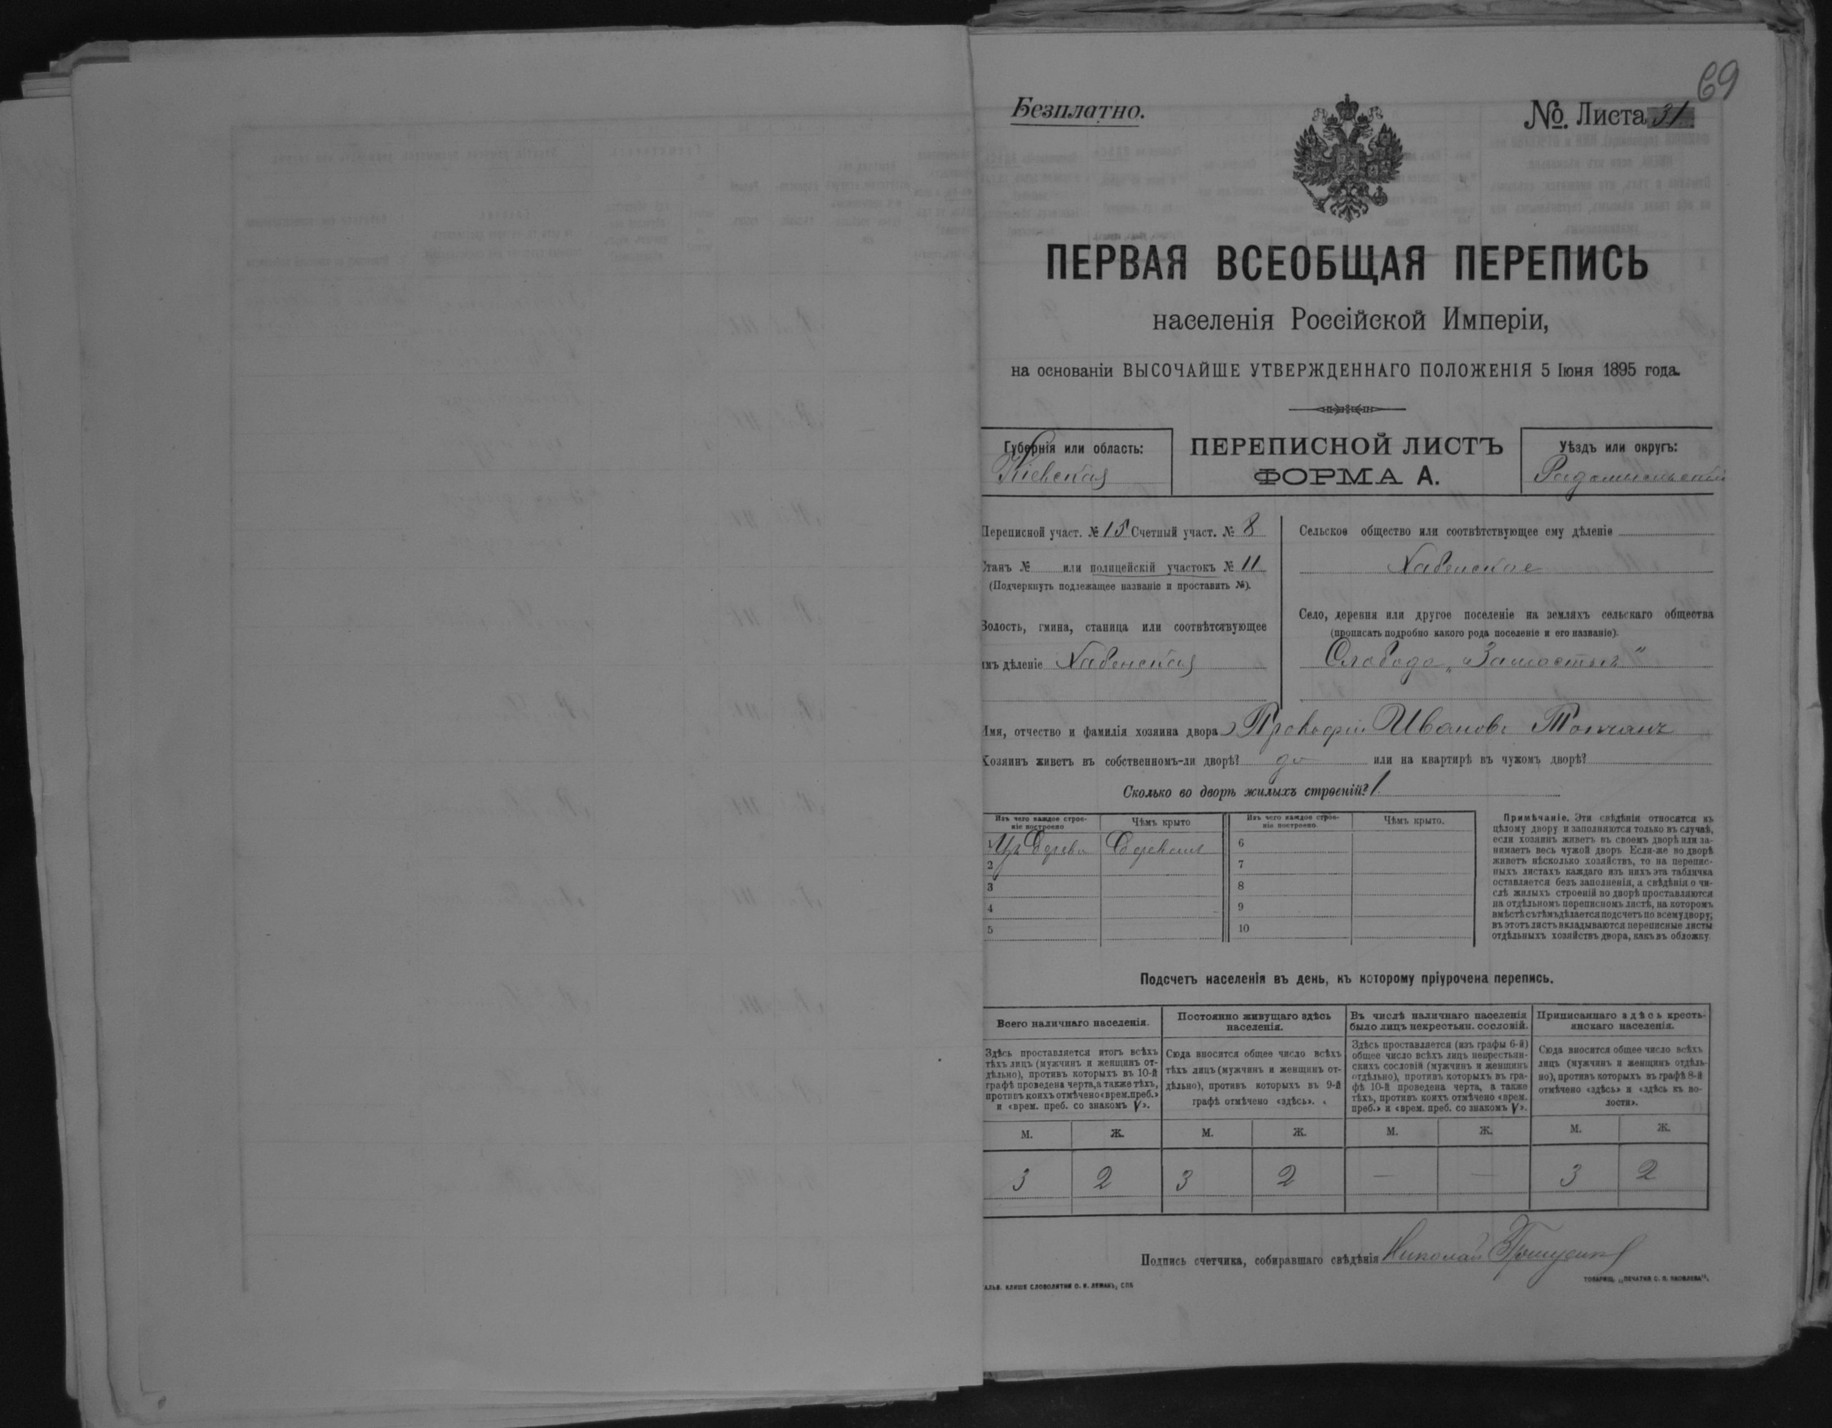 69
Безплатно.
№. Листа 31
ПЕРВАЯ ВСЕОБЩАЯ ПЕРЕПИСЬ
населенія Россійской Имперіи,
на основаніи ВЫСОЧАЙШЕ УТВЕРЖДЕННАГО ПОЛОЖЕНІЯ 5 Іюня 1895 года.
Губернія или область:
Кіевская
ПЕРЕПИСНОЙ ЛИСТЪ
ФОРМА А.
Уѣздъ или округъ:
Радомысльскій
Переписной участ. № 15 Счетный участ. № 8
Станъ № или полицейскій участокъ № 11
(Подчеркнуть подлежащее названіе и проставить №).
Волость, гмина, станица или соотвѣтствующее
имъ дѣленіе Хабенская
Сельское общество или соотвѣтствующее ему дѣленіе
Хабенское
Село, деревня или другое поселеніе на земляхъ сельскаго общества
(прописать подробно какого рода поселеніе и его названіе).
Слобода „Замостье"
Имя, отчество и фамилія хозяина двора Прокофій Ивановъ Толчанъ
Хозяинъ живетъ въ собственномъ-ли дворѣ? да или на квартирѣ въ чужомъ дворѣ?
Сколько во дворѣ жилыхъ строеній? 1
Изъ чего каждое строеніе построено
Чѣмъ крыто
Изъ чего каждое строеніе построено.
Чѣмъ крыто.
1 Изъ дерева
6
2
7
3
8
4
9
5
10
Примѣчаніе. Эти свѣдѣнія относятся къ
цѣлому двору и заполняются только въ случаѣ,
если хозяинъ живетъ въ своемъ дворѣ или за-
нимаетъ весь чужой дворъ. Если-же во дворѣ
живетъ нѣсколько хозяйствъ, то на перепис-
ныхъ листахъ каждаго изъ нихъ эта табличка
оставляется безъ заполненія, а свѣдѣнія о чи-
слѣ жилыхъ строеній во дворѣ проставляются
на отдѣльномъ переписномъ листѣ, на которомъ
вмѣстѣ съ тѣмъ дѣлается подсчетъ по всему двору;
въ этотъ листъ вкладываются переписные листы
отдѣльныхъ хозяйствъ двора, какъ въ обложку.
Подсчетъ населенія въ день, къ которому пріурочена перепись.
Всего наличнаго населенія.
Здѣсь проставляется итогъ всѣхъ
тѣхъ лицъ (мужчинъ и женщинъ от-
дѣльно), противъ которыхъ въ 10-й
графѣ проведена черта, а также тѣхъ,
противъ коихъ отмѣчено «врем. преб.»
и «врем. преб. со знакомъ V».
Постоянно живущаго здѣсь
населенія.
Сюда вносится общее число всѣхъ
тѣхъ лицъ (мужчинъ и женщинъ от-
дѣльно), противъ которыхъ въ 9-й
графѣ отмѣчено «здѣсь».
Въ числѣ наличнаго населенія
было лицъ некрестьян. сословій.
Здѣсь проставляется (изъ графы 6-й)
общее число всѣхъ лицъ некрестьян-
скихъ сословій (мужчинъ и женщинъ
отдѣльно), противъ которыхъ въ гра-
фѣ 10-й проведена черта, а также
тѣхъ, противъ коихъ отмѣчено «врем.
преб.» и «врем. преб. со знакомъ V».
Приписаннаго здѣсь кресть-
янскаго населенія.
Сюда вносится общее число всѣхъ
лицъ (мужчинъ и женщинъ отдѣль-
но), противъ которыхъ въ графѣ 8-й
отмѣчено «здѣсь» и «здѣсь въ во-
лости».
М. Ж. М. Ж. М. Ж. М. Ж.
3 2 3 2 — — 3 2
Подпись счетчика, собиравшаго свѣдѣнія Николай